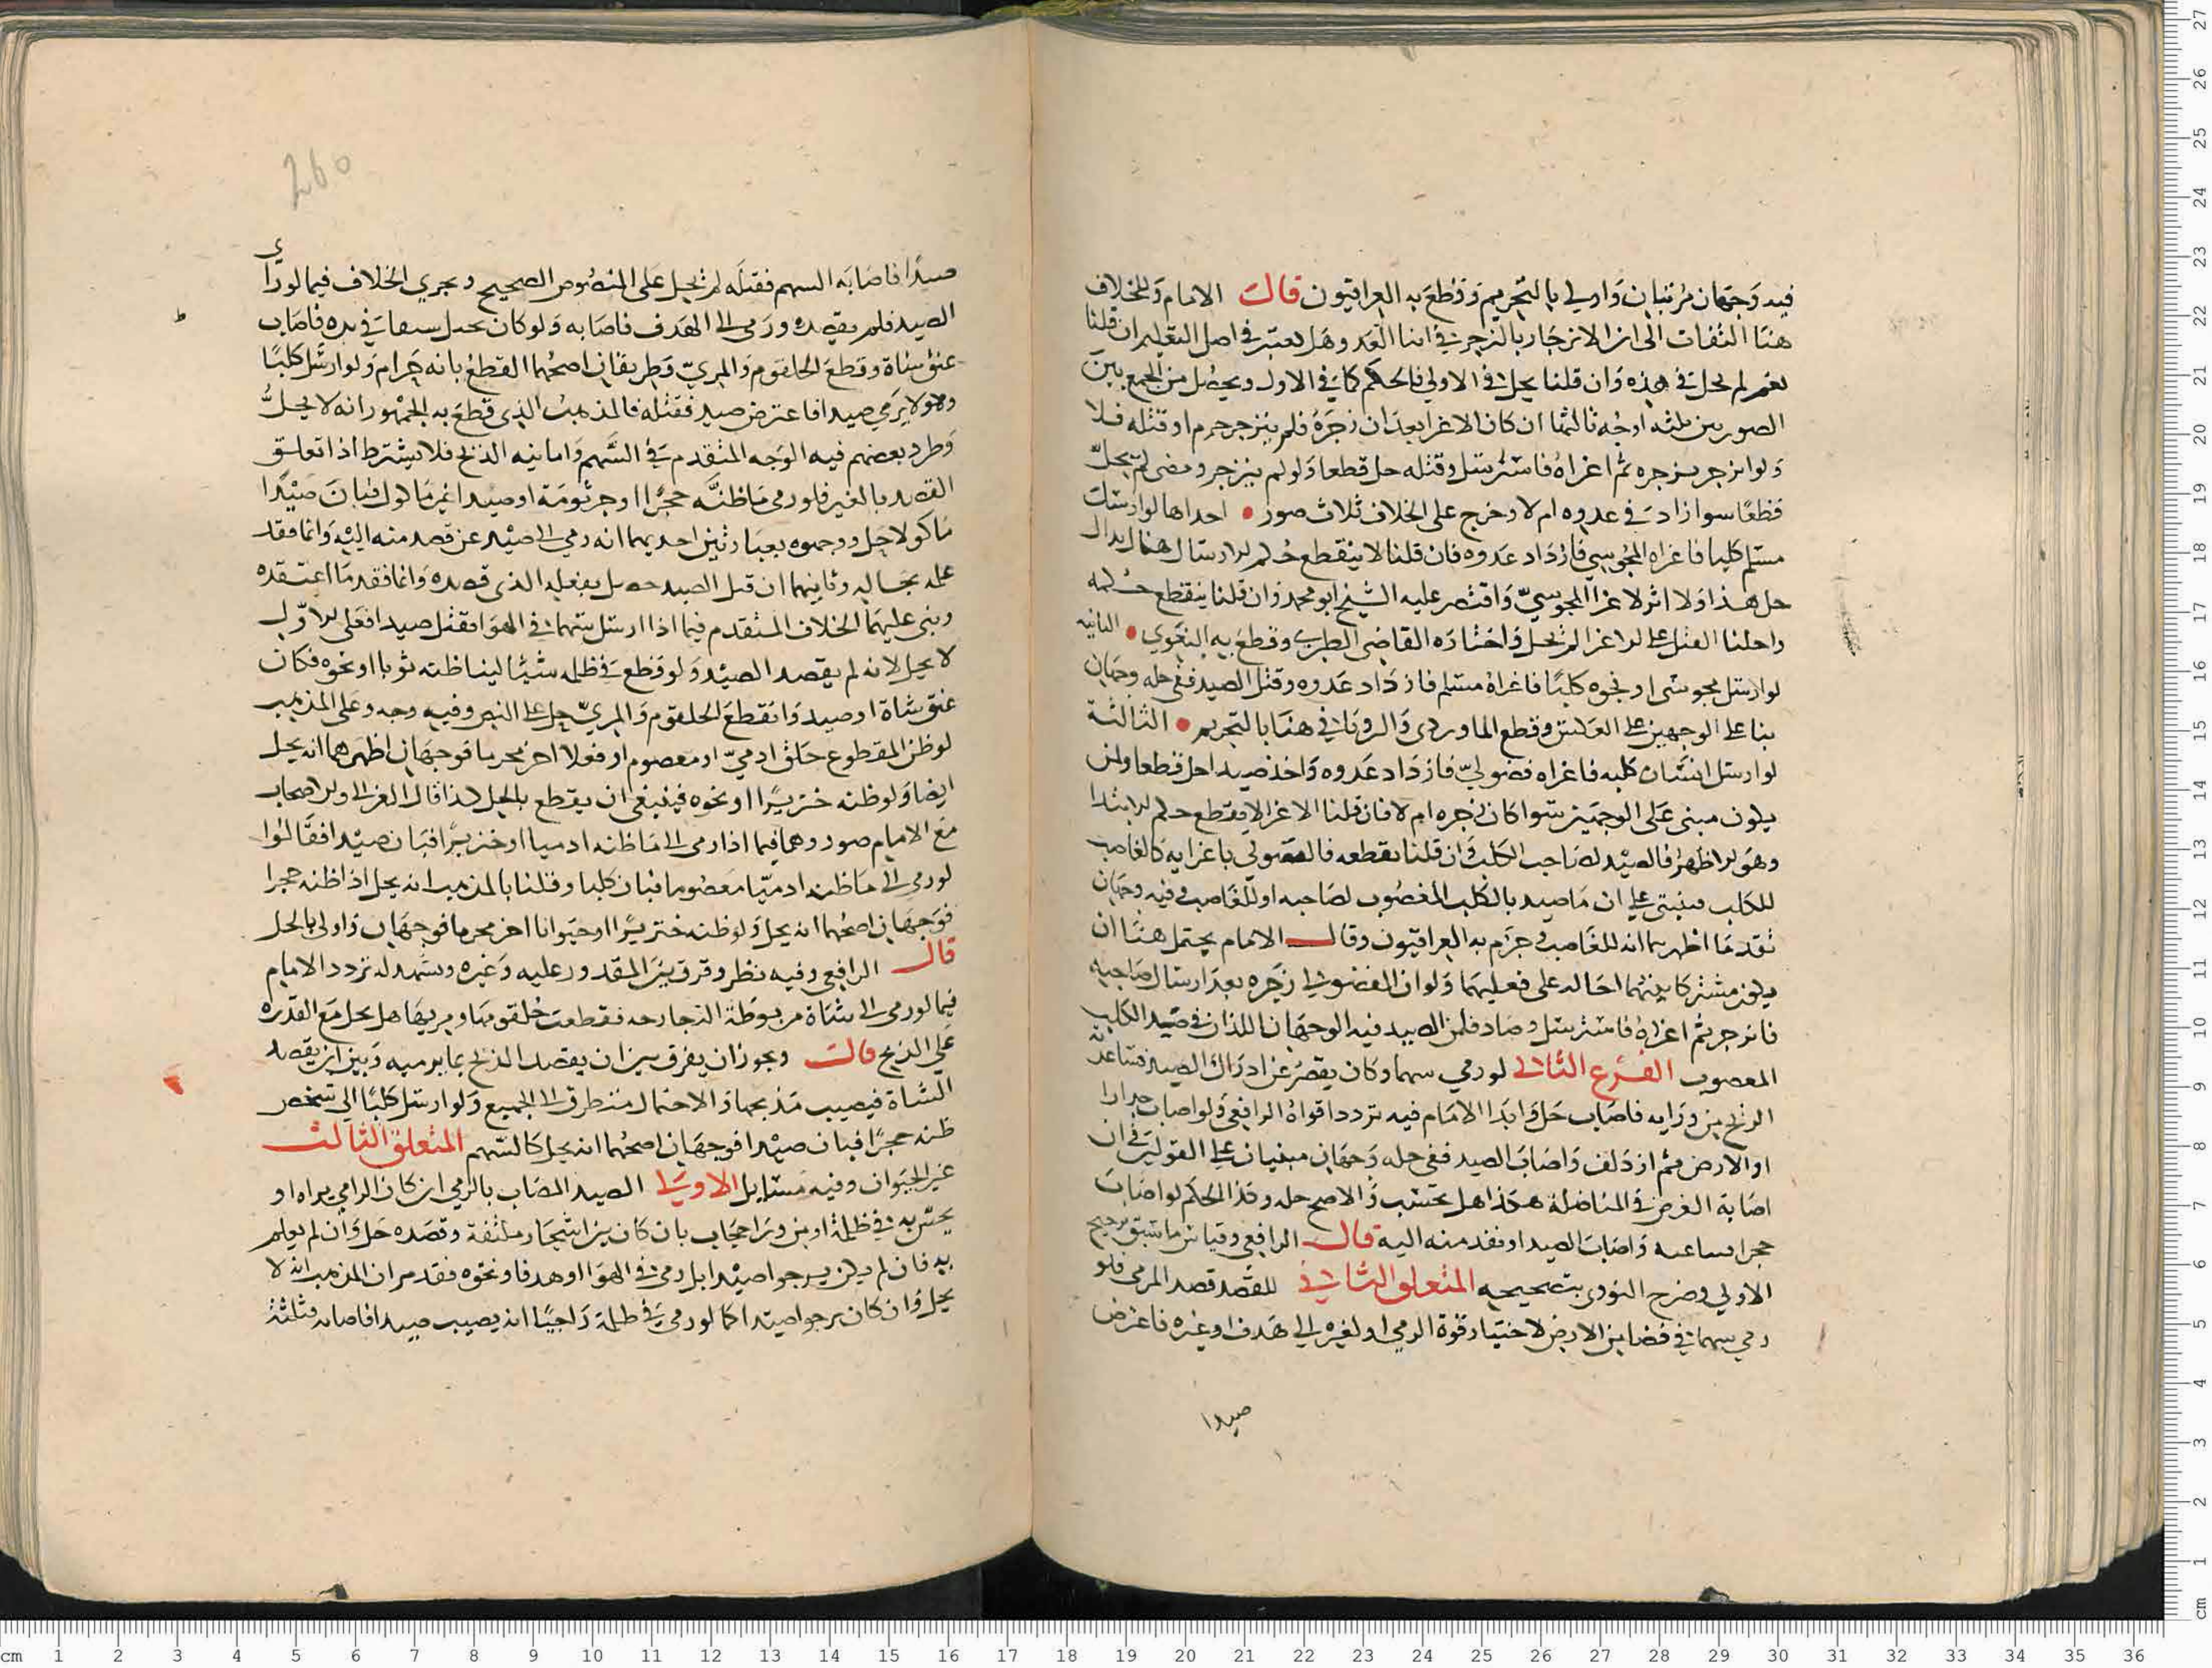 فيه وجهان مرتبان واولي بالتحريم وقطع به العراقيون قال الامام وللخلاف
هنا التفات الى ان الانزجار بالزجر في اثنا العدو هل يعتبر في اصل التعليم ان قلنا
نعم لم يحل في هذه وان قلنا يحل في الاولي فالحكم كما في الاول ويحصل من الجمع بين
الصورتين ثلثه اوجه ثالثها ان كان الاغرا بعد ان زجره فلم ينزجر حرم او قتله فلا
ولو انزجر بزجره ثم اغراه فاسترسل وقتله حل قطعا ولو لم ينزجر ومضى لم يحل
قطعا سوا زاد في عدوه ام لا وخرج على الخلاف ثلاث صور • احداها لو ارسل
مسلم كلبا فاغراه المجوسي فازداد عدوه فان قلنا لا ينقطع حكم الارسال هناك
حل هذا ولا اثر لاغرا المجوسي واقتصر عليه الشيخ ابو محمد وان قلنا ينقطع حكمه
واحلنا القتل على الاغرا لم يحل واختاره القاضي الطبري وقطع به البغوي • الثانيه
لو ارسل مجوسى او نحوه كلبا فاغراه مسلم فازداد عدوه وقتل الصيد ففي حله وجهان
بنا على الوجهين على العكس وقطع الماوردى والروياني هنا بالتحريم • الثالثة
لو ارسل انسان كلبه فاغراه فضولي فازداد عدوه واخذ صيدا حل قطعا ولمن
يكون مبنى على الوجهين سوا كان زجره ام لا فان قلنا الاغرا لا يقطع حكم الابتدا
وهو الاظهر فالصيد لصاحب الكلب وان قلنا يقطعه فالفضولي باغرايه كالغاصب
للكلب فينبنى على ان ما صيد بالكلب المغصوب لصاحبه او للغاصب وفيه وجهان
تقدما اظهرهما انه للغاصب وجزم به العراقيون وقال الامام يحتمل هنا ان
يكون مشتركا بينهما احاله على فعليهما ولو ان الفضولي زجره بعد ارسال صاحبه
فانزجر ثم اغراه فاسترسل وصاد فلمن الصيد فيه الوجهان اللذان في صيد الكلب
المغصوب الفرع الثاني لو رمي سهما وكان يقصر عن ادراك الصيد فساعدته
الريح من ورايه فاصاب حل وابدا الامام فيه تردد اقواه الرافعي ولو اصاب جدارا
او الارض ثم ازدلف واصاب الصيد ففي حله وجهان مبنيان على القولين في ان
اصابة الغرض في المناضلة هكذا هل تحتسب والاصح حله وكذا الحكم لو اصاب
حجرا فساعده واصاب الصيد او نفذ منه اليه قال الرافعي وقياس ما سبق ترجيح
الاولي وصرح النووى بتصحيحه المتعلق الثاني للقصد قصد المرمى فلو
رمي سهما في فضا من الارض لاختبار قوة الرمي او لغيره الى هدف او غيره فاعترض
صيدا
260
صيدا فاصابه السهم فقتله لم يحل على المنصوص الصحيح ويجري الخلاف فيما لو راى
الصيد فلم يقصده ورمى الى الهدف فاصابه ولو كان يحيل سيفا في يده فاصاب
عنق شاة وقطع الحلقوم والمريّ فطريقان اصحهما القطع بانه حرام ولو ارسل كلبا
وهو لا يرمي صيدا فاعترض صيد فقتله فالمذهب الذي قطع به الجمهور انه لا يحل
وطرد بعضهم فيه الوجه المتقدم في السهم واما نيه الذبح فلا يشترط اذا تعلق
القصد بالعين فلو رمى ما ظنه حجرا او جرثومة او صيدا غير ماكول فبان صيدا
ماكولا حل ووجهوه بعبارتين احديهما انه رمي الى صيد عن قصد منه اليه وانما فقد
علمه بحاله وثانيهما ان قتل الصيد حصل بفعله الذي قصده وانما فقد ما اعتقده
وبنى عليهما الخلاف المتقدم فيما اذا ارسل سهما في الهوا فقتل صيدا فعلى الاول
لا يحل لانه لم يقصد الصيد ولو قطع في ظلمه شيئا لينا ظنه ثوبا او نحوه فكان
عنق شاة او صيد وانقطع الحلقوم والمريّ حل على النص وفيه وجه وعلى المذهب
لو ظن المقطوع حلق ادميّ او معصوم او فعلا اخر محرما فوجهان اظهرهما انه يحل
ايضا ولو ظنه خنزيرا او نحوه فينبغي ان يقطع بالحل كذا قال الغزالي وللاصحاب
مع الامام صور وهما فيما اذا رمى الى ما ظنه ادميا او خنزيرا فبان صيدا فقالوا
لو رمى الى ما ظنه ادميّا معصوما فبان كلبا وقلنا بالمذهب انه يحل اذا ظنه حجرا
فوجهان اصحهما انه يحل ولو ظنه خنزيرا او حيوانا اخر محرما فوجهان واولى بالحل
قال الرافعي وفيه نظر وفرق بين المقدور عليه وغيره ويشهد له تردد الامام
فيما لو رمى الى شاة مربوطة آلة جارحه فقطعت حلقومها ومريها هل يحل مع القدره
على الذبح قال ويجوز ان يفرق بين ان يقصد الذبح بما يرميه وبين ان يقصد
الشاة فيصيب مذبحها والاحتمال متطرق الى الجميع ولو ارسل كلبا الى شخص
ظنه حجرا فبان صيدا فوجهان اصحهما انه يحل كالسهم المتعلق الثالث
عين الحيوان وفيه مسايل الاولى الصيد المصاب بالرمي ان كان الرامي يراه او
يحس به في ظلمة او من ورا حجاب بان كان بين اشجار ملتفة وقصده حل وان لم يعلم
به فان لم يكن يرجوا صيدا بل رمى في الهوا او هدفا ونحوه فقد مر ان المذهب انه لا
يحل وان كان يرجوا صيدا كما لو رمى في ظلمة راجيا انه يصيب صيدا فاصابه فثلثة